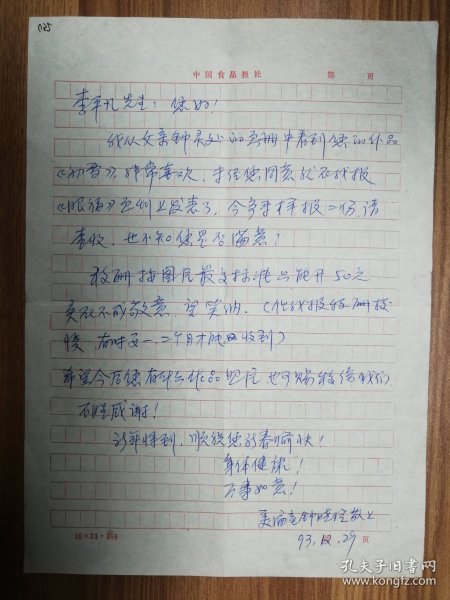 035
中国食品报社 第 页
李平凡先生：您好！
我从父亲钟灵处的画册中看到您的作品
《初春》，非常喜欢，未经您同意就在我报
《服务》画刊上发表了，今寄去样报二份，请
查收，也不知您是否满意？
稿酬按国家最高标准只能开50元
实在不成敬意，望笑纳。（但我报稿酬较
慢，有时要一、二个月才能收到）
希望今后您有什么作品照片，也可赐稿给我们
不胜感谢！
新年将到，顺祝您新春愉快！
身体健康！
万事如意！
美编室钟 敬上
93.12.29
16×23=368 页
孔夫子旧书网